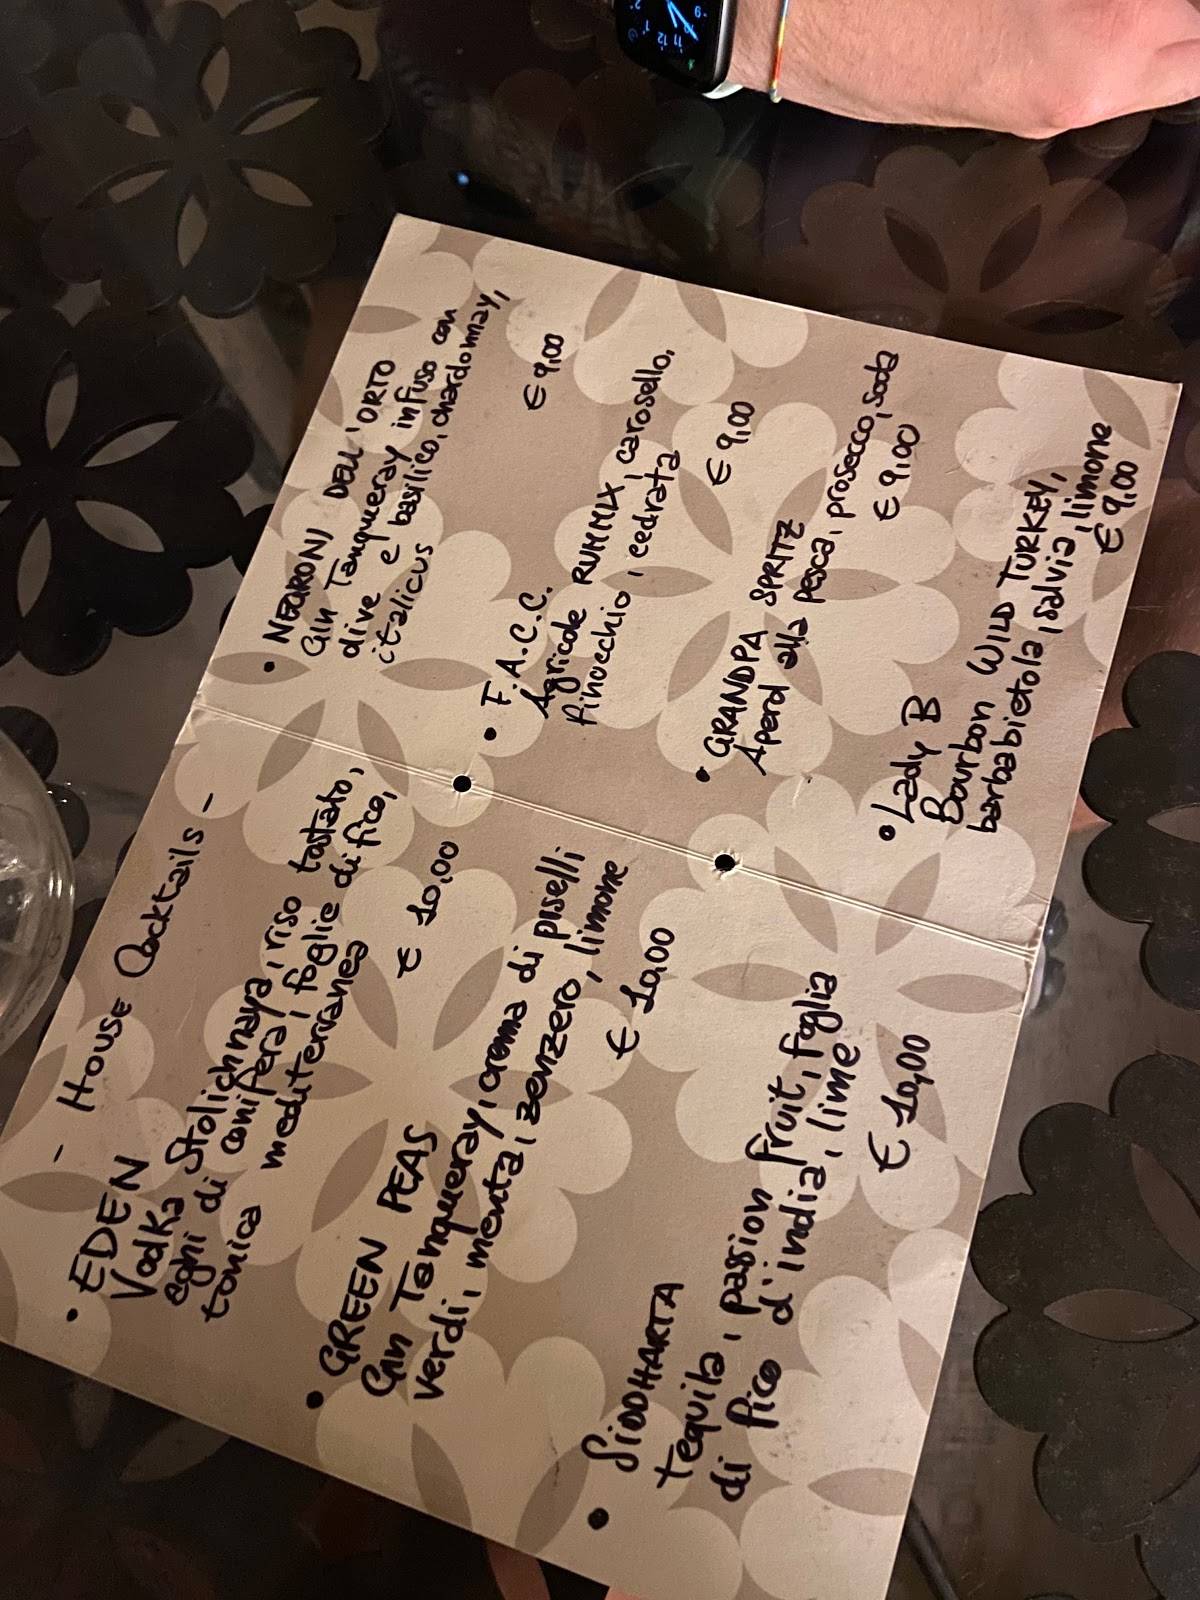 - House Cocktails -
• EDEN
Vodka Stolichnaya, riso tostato,
aghi di conifera, foglie di fico,
tonica mediterranea
€ 10,00
• GREEN PEAS
Gin Tanqueray, crema di piselli
verdi, menta, zenzero, limone
€ 10,00
• SIDDHARTA
tequila, passion fruit, foglia
di fico d'india, lime
€ 10,00
• NEGRONI DELL'ORTO
Gin Tanqueray infuso con
olive e basilico, chardonnay,
italicus
€ 9,00
• F.A.C.C.
Agricole RUMMIX, carosello,
finocchio, cedrata
€ 9,00
• GRANDPA SPRITZ
Aperol alla pesca, prosecco, soda
€ 9,00
• Lady B
Bourbon WILD TURKEY,
barbabietola, salvia, limone
€ 9,00